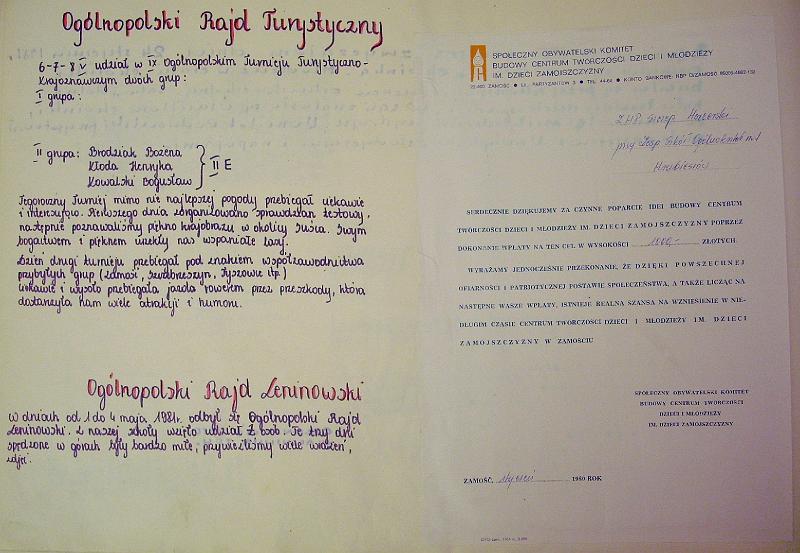 Ogólnopolski Rajd Turystyczny
6-7-8 V udział w IX Ogólnopolskim Turnieju Turystyczno-
Krajoznawczym dwóch grup:
I grupa:
II grupa: Brodziak Bożena
Kłoda Henryka
Kowalski Bogusław
II E
Tegoroczny Turniej mimo nie najlepszej pogody przebiegał ciekawie
i intensywnie. Pierwszego dnia zorganizowano sprawdzian testowy,
następnie poznawaliśmy piękno krajobrazu w okolicy Suśca. Swym
bogactwem i pięknem urzekły nas wspaniałe lasy.
Dzień drugi turnieju przebiegał pod znakiem współzawodnictwa
przybyłych grup (Zamość, Szczebrzeszyn, Tyszowce itp.)
Ciekawie i wesoło przebiegała jazda rowerem przez przeszkody, która
dostarczyła nam wiele atrakcji i humoru.
Ogólnopolski Rajd Leninowski
W dniach od 1 do 4 maja 1981r. odbył się Ogólnopolski Rajd
Leninowski. Z naszej szkoły wzięło udział 7 osób. Te trzy dni
spędzone w górach były bardzo miłe, przywieźliśmy wiele wrażeń,
zdjęć.
SPOŁECZNY OBYWATELSKI KOMITET
BUDOWY CENTRUM TWÓRCZOŚCI DZIECI I MŁODZIEŻY
IM. DZIECI ZAMOJSZCZYZNY
22-400 ZAMOŚĆ • UL. PARTYZANTÓW 3 • TEL. 44-64 • KONTO BANKOWE: NBP O/ZAMOŚĆ
ZHP. Szczep Harcerski
przy Zesp. Szkół Ogólnokszt. nr 1
Hrubieszów
SERDECZNIE DZIĘKUJEMY ZA CZYNNE POPARCIE IDEI BUDOWY CENTRUM
TWÓRCZOŚCI DZIECI I MŁODZIEŻY IM. DZIECI ZAMOJSZCZYZNY POPRZEZ
DOKONANIE WPŁATY NA TEN CEL W WYSOKOŚCI 1000,- ZŁOTYCH.
WYRAŻAMY JEDNOCZEŚNIE PRZEKONANIE, ŻE DZIĘKI POWSZECHNEJ
OFIARNOŚCI I PATRIOTYCZNEJ POSTAWIE SPOŁECZEŃSTWA, A TAKŻE LICZĄC NA
NASTĘPNE WASZE WPŁATY, ISTNIEJE REALNA SZANSA NA WZNIESIENIE W NIE-
DŁUGIM CZASIE CENTRUM TWÓRCZOŚCI DZIECI I MŁODZIEŻY IM. DZIECI
ZAMOJSZCZYZNY W ZAMOŚCIU
SPOŁECZNY OBYWATELSKI KOMITET
BUDOWY CENTRUM TWÓRCZOŚCI
DZIECI I MŁODZIEŻY
IM. DZIECI ZAMOJSZCZYZNY
ZAMOŚĆ, styczeń 1980 ROK